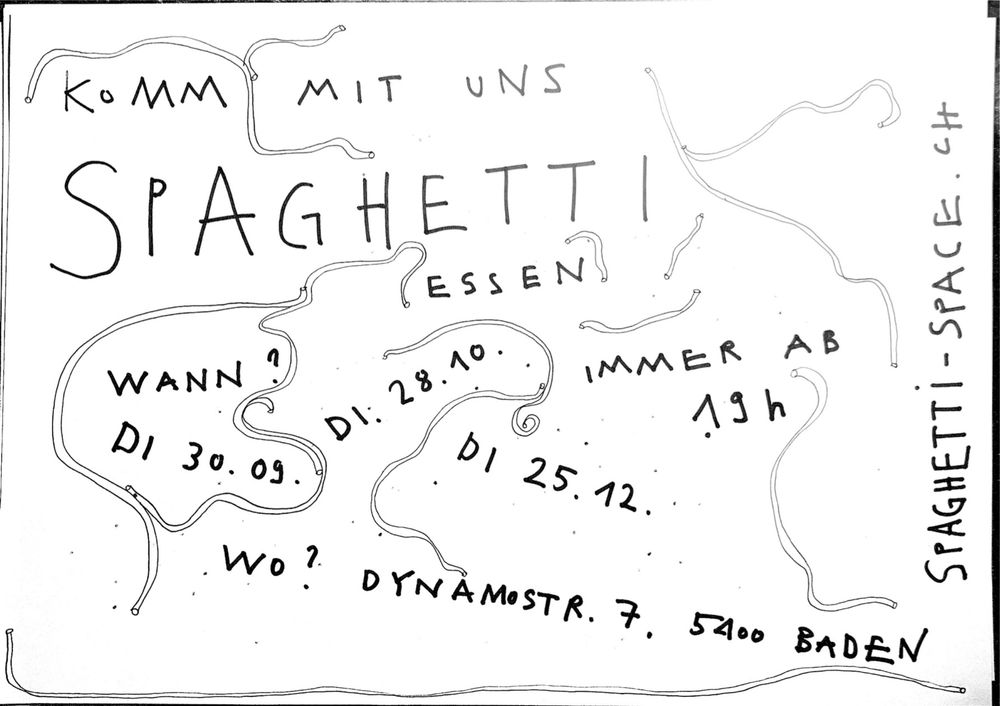 KOMM MIT UNS
SPAGHETTI
ESSEN
WANN?
DI 30.09.
DI. 28.10.
DI 25.12.
IMMER AB
19h
WO? DYNAMOSTR. 7. 5400 BADEN
SPAGHETTI-SPACE.CH